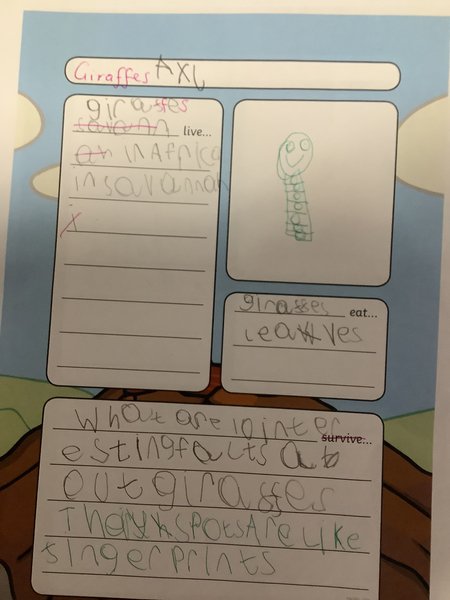 Giraffes AXL
giraffes
savann live...
an in Africa
in savannah
x
giraffes eat...
leaves
What are 10 inter
survive...
esting facts ab
out giraffes
They spots Are like
fingerprints